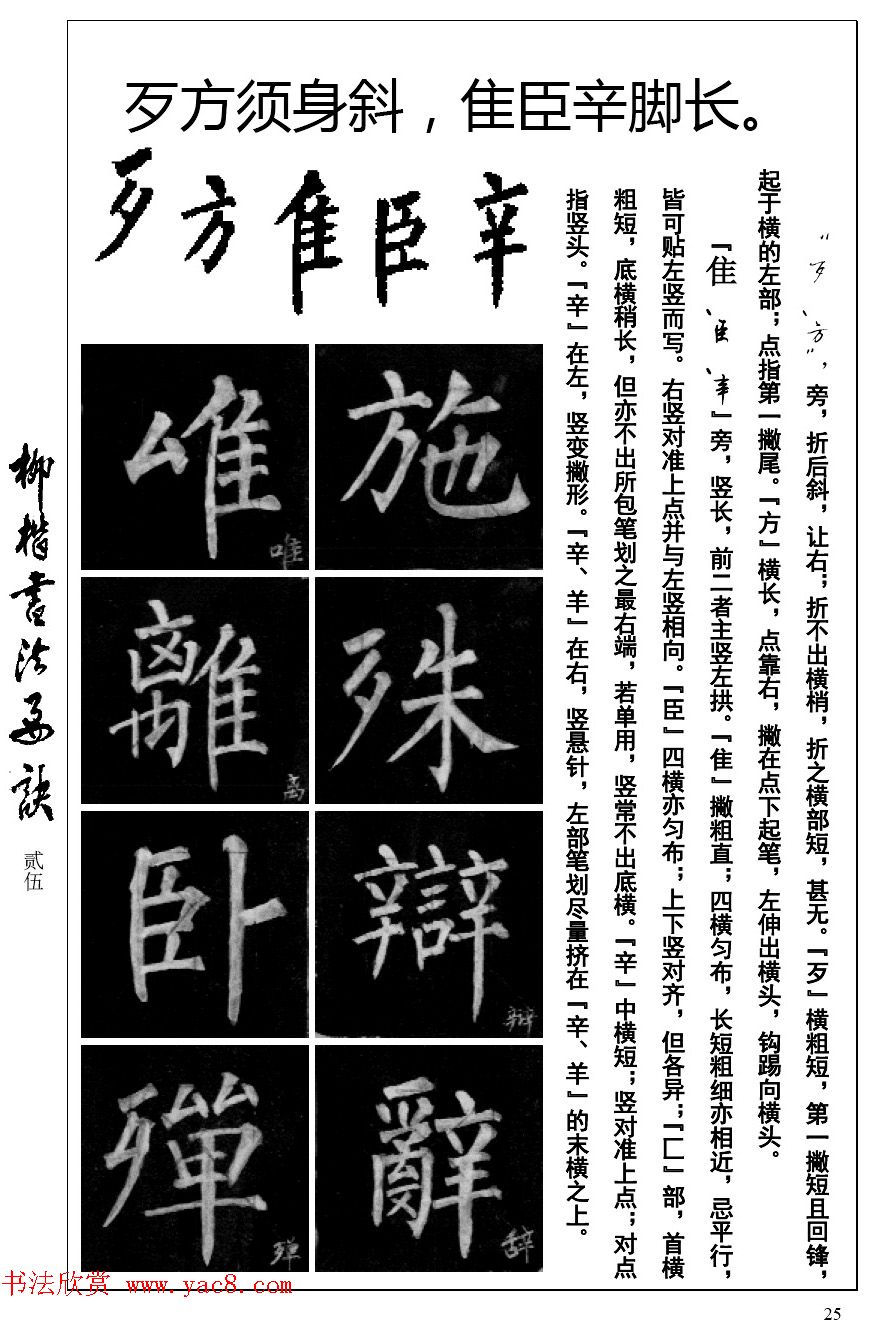 歹方须身斜，隹臣辛脚长。
歹方隹臣辛
“歹、方”，旁，折后斜，让右；折不出横梢，折之横部短，甚无。『歹』横粗短，第一撇短且回锋，
起于横的左部；点指第一撇尾。『方』横长，点靠右，撇在点下起笔，左伸出横头，钩踢向横头。
『隹、臣、辛』旁，竖长，前二者主竖左拱。『隹』撇粗直；四横匀布，长短粗细亦相近，忌平行，
皆可贴左竖而写。右竖对准上点并与左竖相向。『臣』四横亦匀布；上下竖对齐，但各异；『匚』部，首横
粗短，底横稍长，但亦不出所包笔划之最右端，若单用，竖常不出底横。『辛』中横短；竖对准上点；对点
指竖头。『辛』在左，竖变撇形。『辛、羊』在右，竖悬针，左部笔划尽量挤在『辛、羊』的末横之上。
施
唯
唯
殊
離
离
辯
辩
卧
辭
辞
殫
殚
柳楷书法要诀
贰伍
书法欣赏 www.yac8.com
25